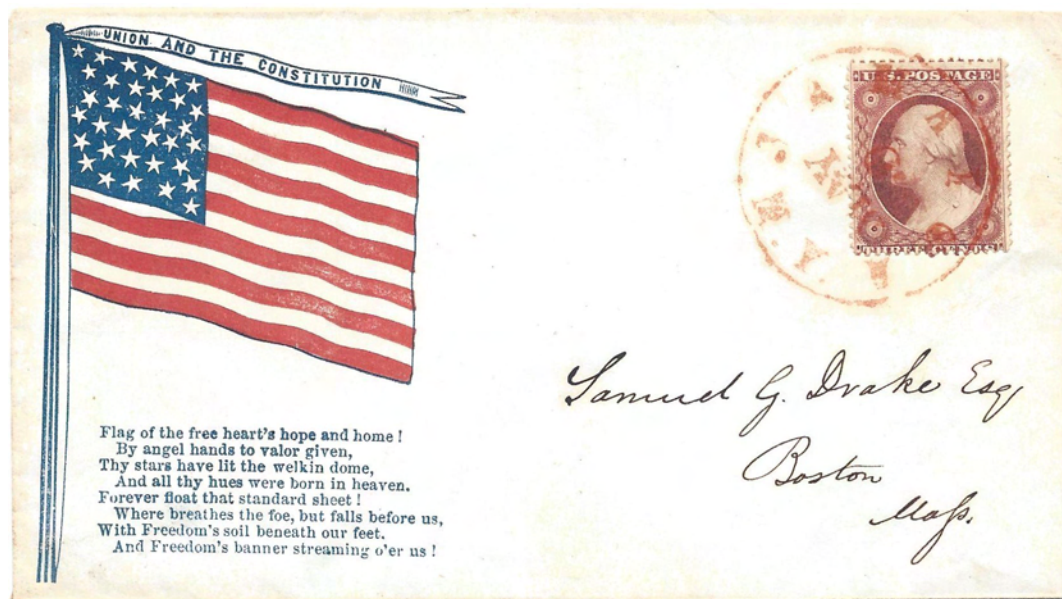 UNION AND THE CONSTITUTION
U.S. POSTAGE
THREE CENTS
Samuel G. Drake Esq
Boston
Maſs.
Flag of the free heart's hope and home !
By angel hands to valor given,
Thy stars have lit the welkin dome,
And all thy hues were born in heaven.
Forever float that standard sheet !
Where breathes the foe, but falls before us,
With Freedom's soil beneath our feet.
And Freedom's banner streaming o'er us !